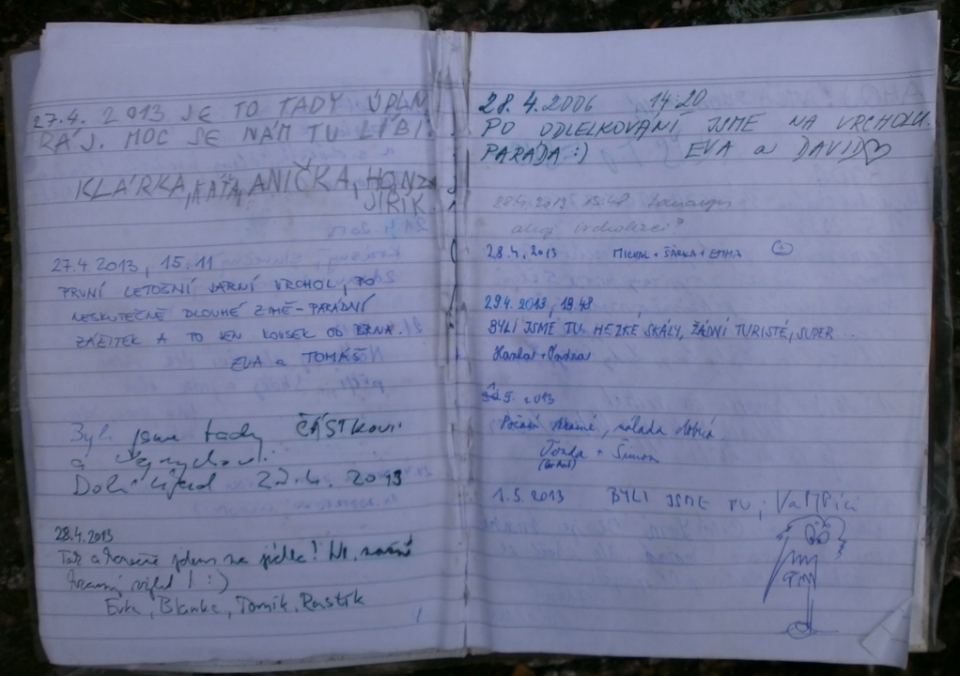 27.4. 2013 JE TO TADY ÚPLN
RÁJ. MOC SE NÁM TU LÍBÍ.
KLÁRKA, KÁŤA, ANIČKA, HONZA
JIŘÍK
27.4 2013, 15.11
PRVNÍ LETOŠNÍ JARNÍ VRCHOL, PO
NESKUTEČNĚ DLOUHÉ ZIMĚ - PARÁDNÍ
ZÁŽITEK A TO JEN KOUSEK OD BRNA.
EVA a TOMÁŠ
Byli jsme tady ČÁSTKOVI
a
Dolní Újezd 27.4 2013
28.4.2013
Tak a konečně jdem na jídlo!
krásný výhled! :)
Evka, Blanka, Tomík, Rastík
28.4.2006 14:20
PO ODLELKOVÁNÍ JSME NA VRCHOLU.
PARÁDA :) EVA a DAVID
28.4.2013
ahoj
28.4.2013 MICHAL + ŠÁRKA + EMMA
29.4.2013, 19.48
BYLI JSME TU, HEZKÉ SKÁLY, ŽÁDNÍ TURISTÉ, SUPER...
5. 2013
Počasí krásné, nálada dobrá
Jonda + Šimon
1.5.2013 BYLI JSME TU,